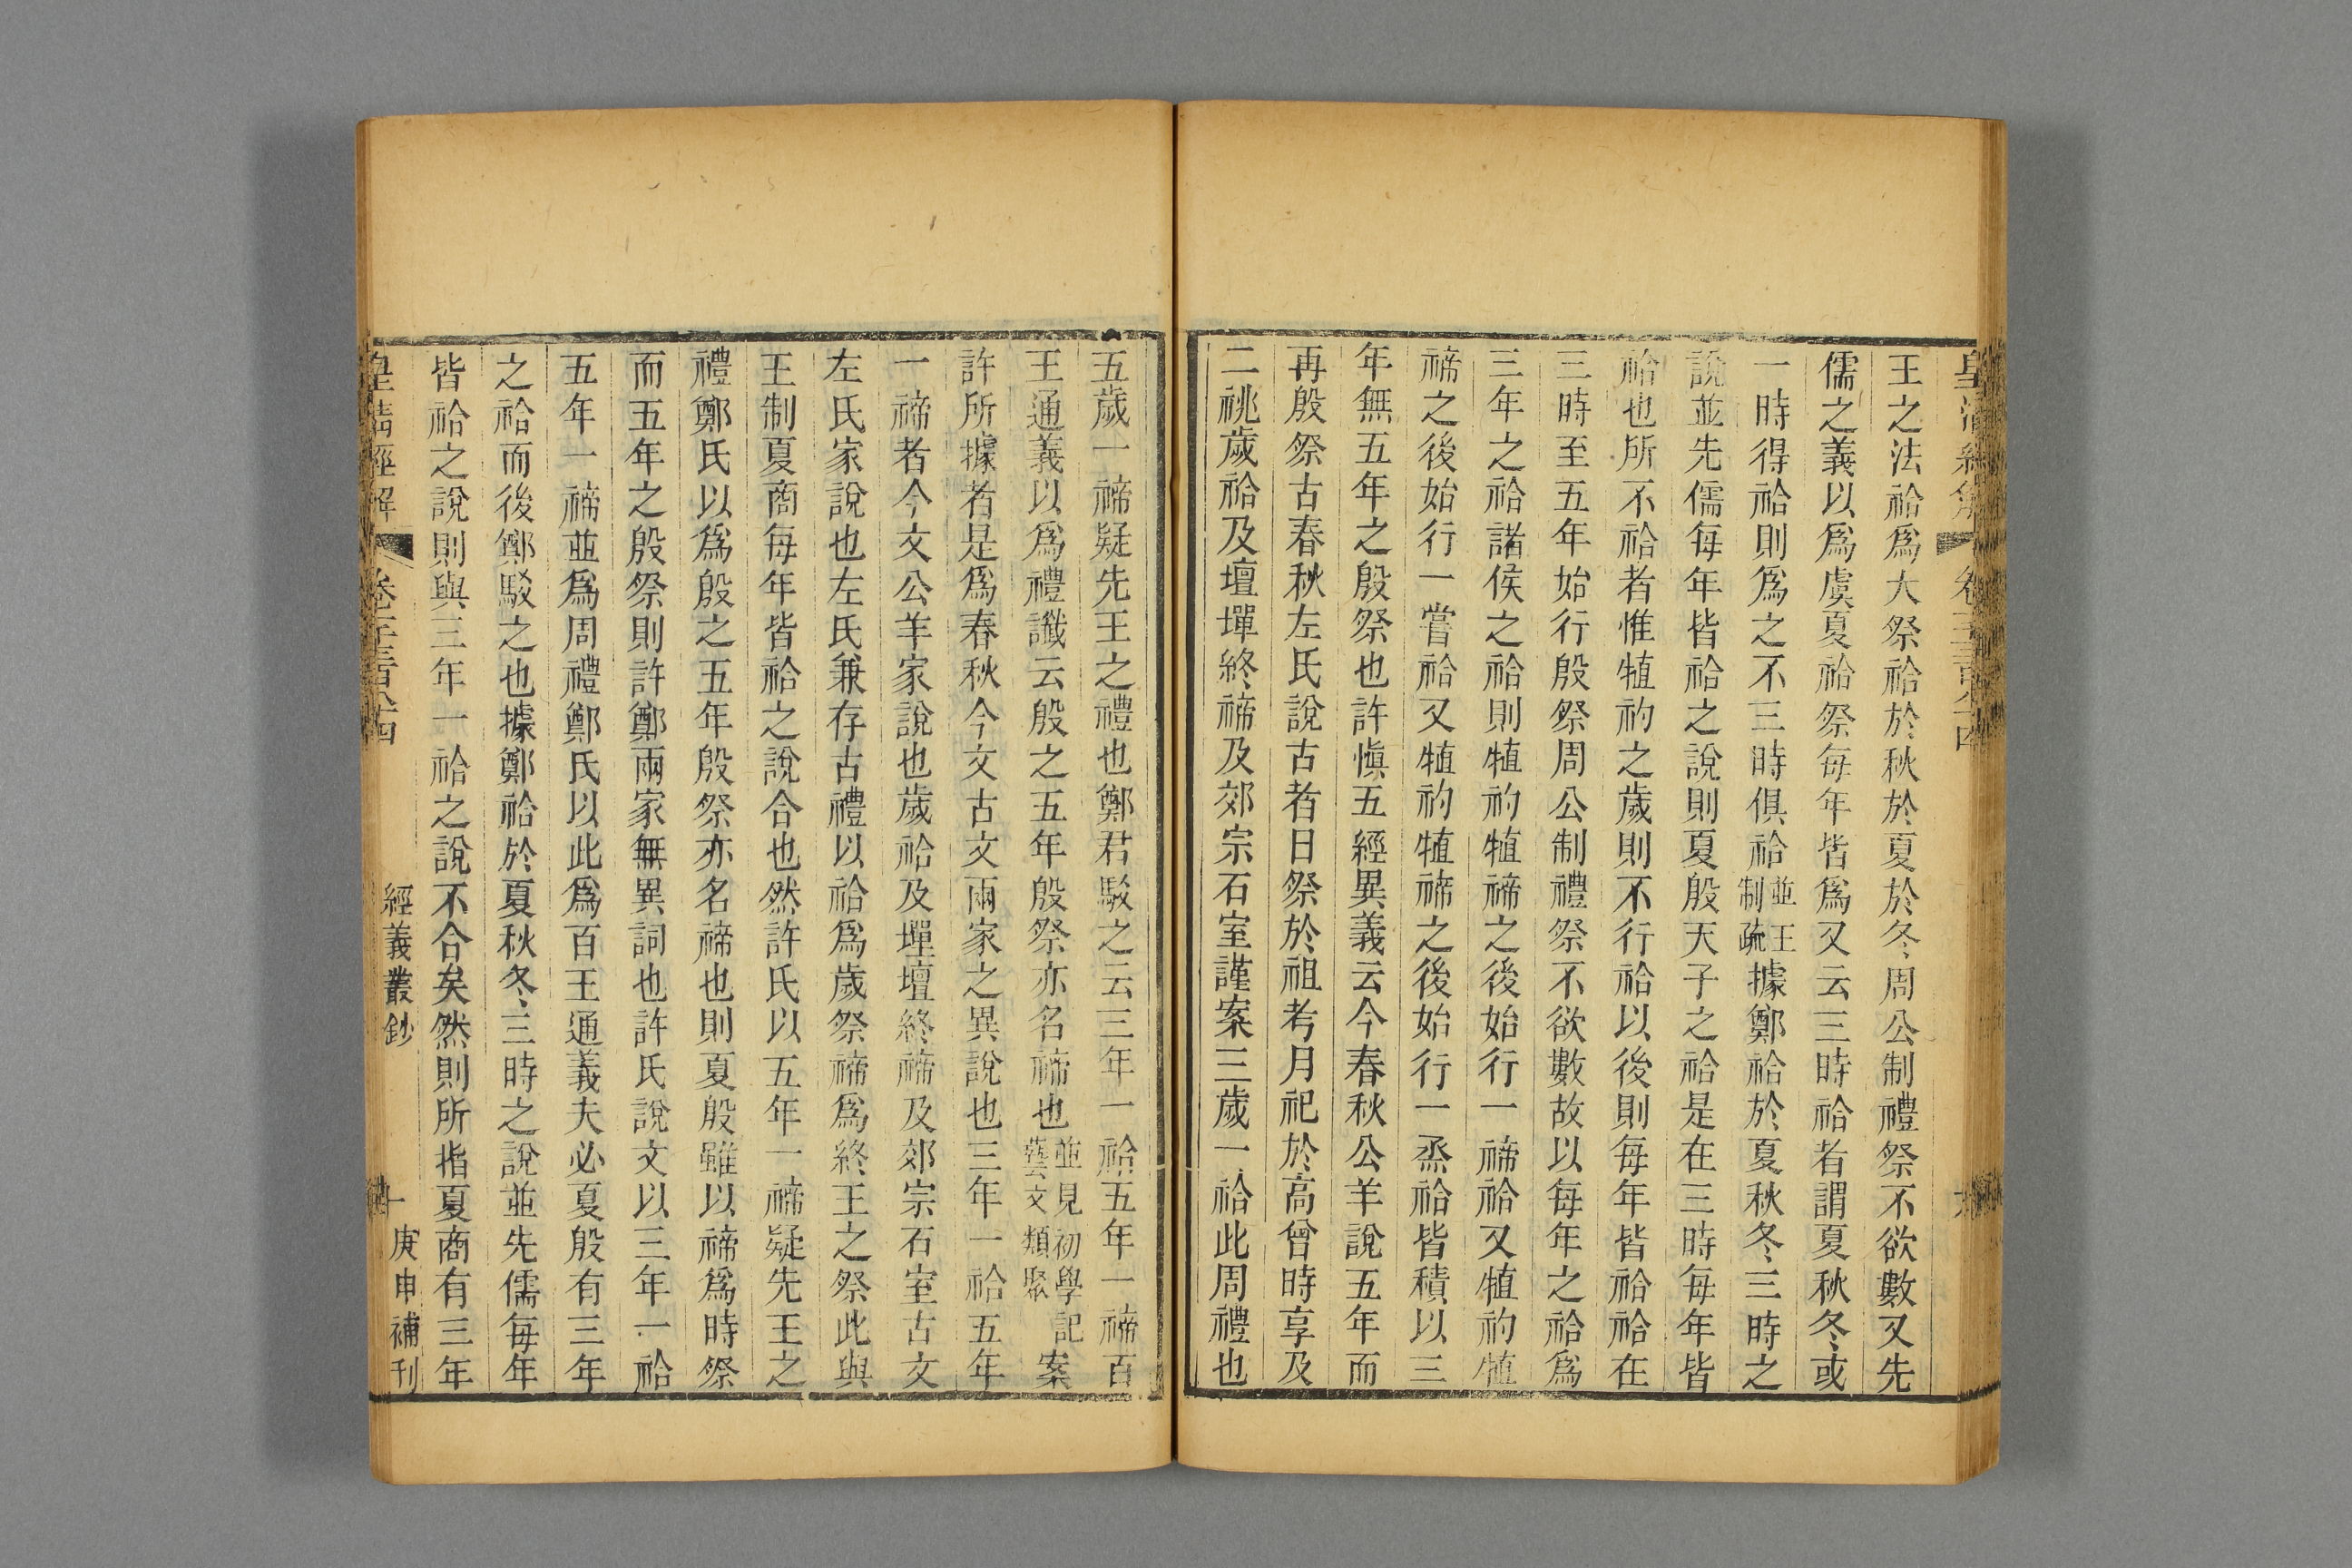 王之法祫爲大祭祫於秋於夏於冬周公制禮祭不欲數又先
儒之義以爲虞夏祫祭每年皆爲又云三時祫者謂夏秋冬或
一時得祫則爲之不三時俱祫並王制疏據鄭祫於夏秋冬三時之
說並先儒每年皆祫之說則夏殷天子之祫是在三時每年皆
祫也所不祫者惟犆礿之歲則不行祫以後則每年皆祫祫在
三時至五年始行殷祭周公制禮祭不欲數故以每年之祫爲
三年之祫諸侯之祫則犆礿犆禘之後始行一禘祫又犆礿犆
禘之後始行一嘗祫又犆礿犆禘之後始行一烝祫皆積以三
年無五年之殷祭也許愼五經異義云今春秋公羊說五年而
再殷祭古春秋左氏說古者日祭於祖考月祀於高曾時享及
二祧歲祫及壇墠終禘及郊宗石室謹案三歲一祫此周禮也
五歲一禘疑先王之禮也鄭君駁之云三年一祫五年一禘百
王通義以爲禮讖云殷之五年殷祭亦名禘也並見初學記藝文類聚案
許所據者是爲春秋今文古文兩家之異說也三年一祫五年
一禘者今文公羊家說也歲祫及墠壇終禘及郊宗石室古文
左氏家說也左氏兼存古禮以祫爲歲祭禘爲終王之祭此與
王制夏商每年皆祫之說合也然許氏以五年一禘疑先王之
禮鄭氏以爲殷之五年殷祭亦名禘也則夏殷雖以禘爲時祭
而五年之殷祭則許鄭兩家無異詞也許氏說文以三年一祫
五年一禘並爲周禮鄭氏以此爲百王通義夫必夏殷有三年
之祫而後鄭駁之也據鄭祫於夏秋冬三時之說並先儒每年
皆祫之說則與三年一祫之說不合矣然則所指夏商有三年
皇清經解 卷一千三百八十四 經義叢鈔 十 庚申補刊